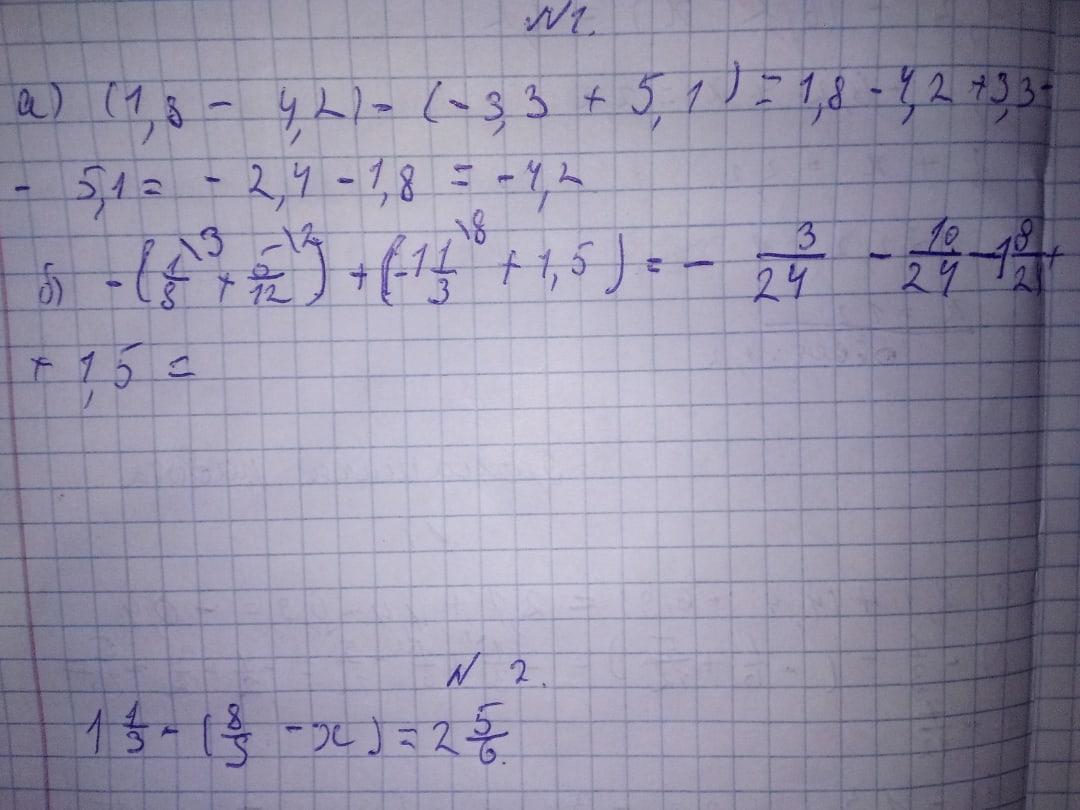 N1.
а) (1,8 - 4,2) - (-3,3 + 5,1) = 1,8 - 4,2 + 3,3 -
- 5,1 = - 2,4 - 1,8 = - 4,2
б) - (1/8 \3 + 5/12 \2) + (-1 1/3 \8 + 1,5) = - 3/24 - 10/24 - 1 8/24 +
+ 1,5 =
N 2.
1 1/3 - (8/9 - x) = 2 5/6.